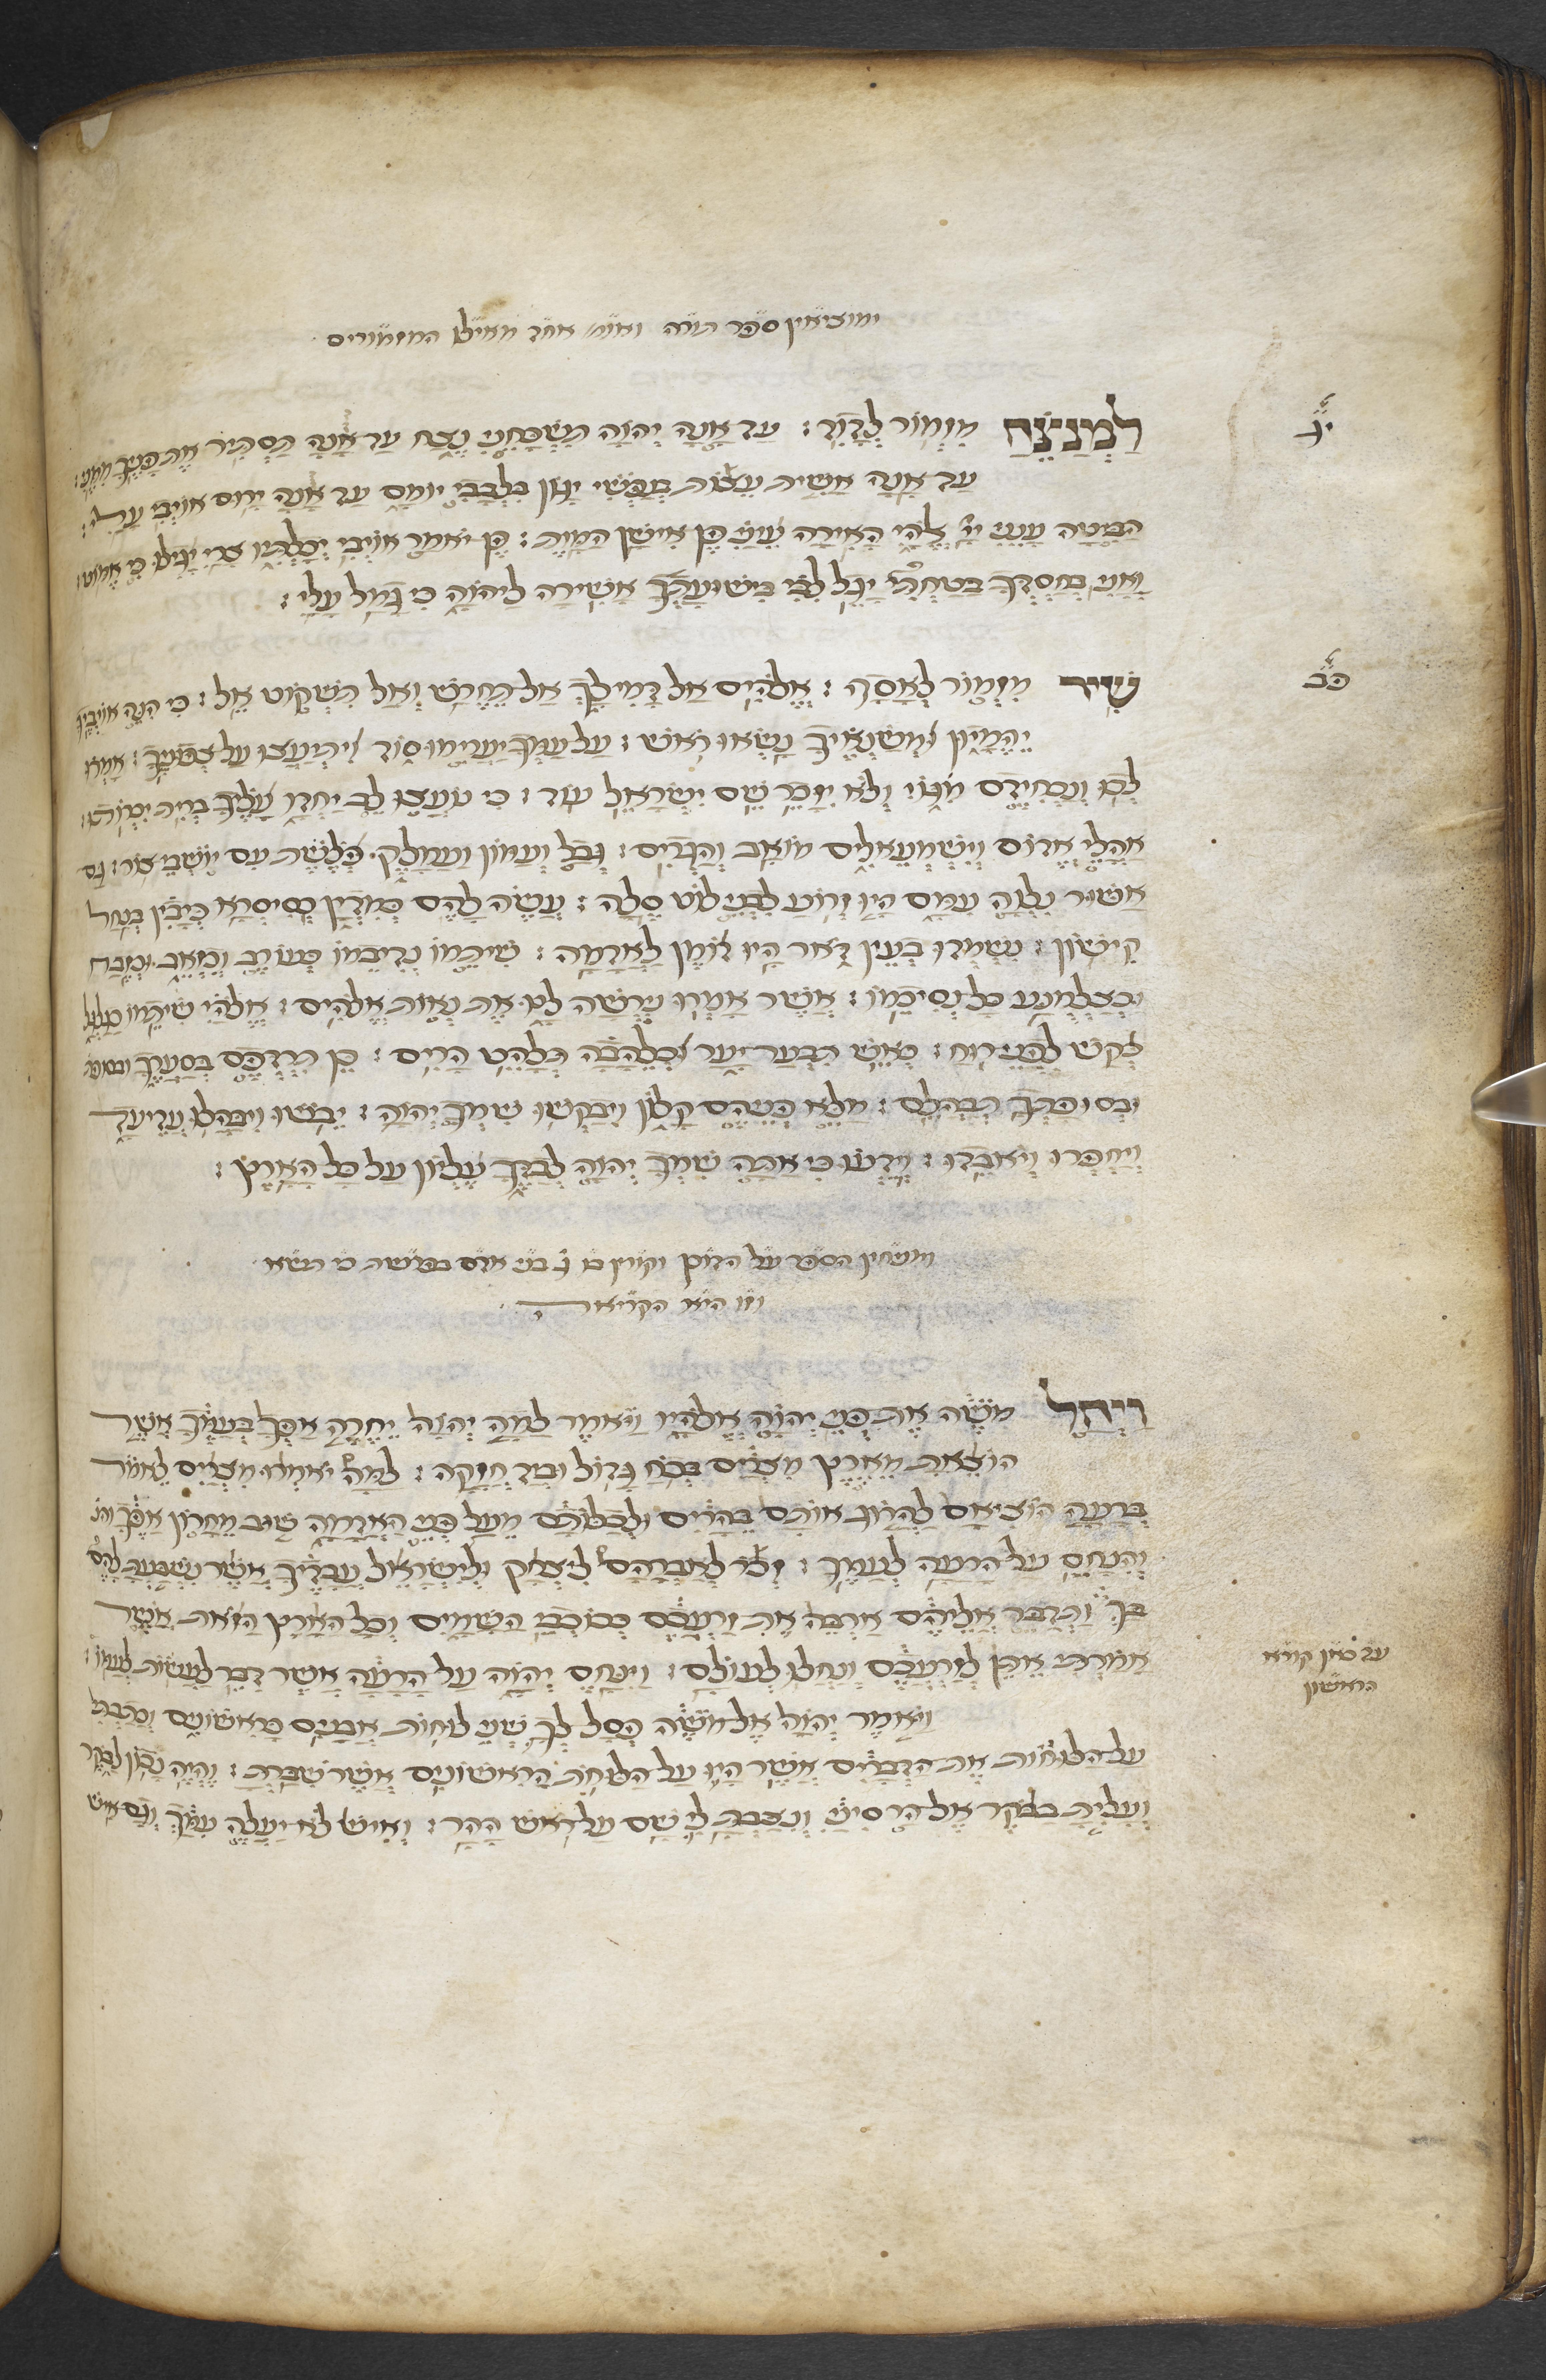 ומוציאין ספר תורה ואומ' אחד מאילו המזמורים
י"ג
לַמְנַצֵּחַ מִזְמוֹר לְדָוִד: עַד אָנָה יְהוָה תִּשְׁכָּחֵנִי נֶצַח עַד אָנָה תַּסְתִּיר אֶת פָּנֶיךָ מִמֶּנִּי:
עַד אָנָה אָשִׁית עֵצוֹת בְּנַפְשִׁי יָגוֹן בִּלְבָבִי יוֹמָם עַד אָנָה יָרוּם אוֹיְבִי עָלָי:
הַבִּיטָה עֲנֵנִי יְיָ אֱלֹהָי הָאִירָה עֵינַי פֶּן אִישַׁן הַמָּוֶת: פֶּן יֹאמַר אוֹיְבִי יְכָלְתִּיו צָרַי יָגִילוּ כִּי אֶמּוֹט:
וַאֲנִי בְּחַסְדְּךָ בָטַחְתִּי יָגֵל לִבִּי בִּישׁוּעָתֶךָ אָשִׁירָה לַיהוָה כִּי גָמַל עָלָי:
פ"ג
שִׁיר מִזְמוֹר לְאָסָף: אֱלֹהִים אַל דֳּמִי לָךְ אַל תֶּחֱרַשׁ וְאַל תִּשְׁקוֹט אֵל: כִּי הִנֵּה אוֹיְבֶיךָ
יֶהֱמָיוּן וּמְשַׂנְאֶיךָ נָשְׂאוּ רֹאשׁ: עַל עַמְּךָ יַעֲרִימוּ סוֹד וְיִתְיָעֲצוּ עַל צְפוּנֶיךָ: אָמְרוּ
לְכוּ וְנַכְחִידֵם מִגּוֹי וְלֹא יִזָּכֵר שֵׁם יִשְׂרָאֵל עוֹד: כִּי נוֹעֲצוּ לֵב יַחְדָּו עָלֶיךָ בְּרִית יִכְרֹתוּ:
אָהֳלֵי אֱדוֹם וְיִשְׁמְעֵאלִים מוֹאָב וְהַגְרִים: גְּבָל וְעַמּוֹן וַעֲמָלֵק פְּלֶשֶׁת עִם יוֹשְׁבֵי צוֹר: גַּם
אַשּׁוּר נִלְוָה עִמָּם הָיוּ זְרוֹעַ לִבְנֵי לוֹט סֶלָה: עֲשֵׂה לָהֶם כְּמִדְיָן כְּסִיסְרָא כְיָבִין בְּנַחַל
קִישׁוֹן: נִשְׁמְדוּ בְעֵין דֹּאר הָיוּ דּוֹמֶן לָאֲדָמָה: שִׁיתֵמוֹ נְדִיבֵמוֹ כְּעוֹרֵב וְכִזְאֵב וּכְזֶבַח
וּכְצַלְמֻנָּע כָּל נְסִיכֵמוֹ: אֲשֶׁר אָמְרוּ נִירֲשָׁה לָּנוּ אֵת נְאוֹת אֱלֹהִים: אֱלֹהַי שִׁיתֵמוֹ כַגַּלְגַּל
כְּקַשׁ לִפְנֵי רוּחַ: כְּאֵשׁ תִּבְעַר יָעַר וּכְלֶהָבָה תְּלַהֵט הָרִים: כֵּן תִּרְדְּפֵם בְּסַעֲרֶךָ
וּבְסוּפָתְךָ תְבַהֲלֵם: מַלֵּא פְנֵיהֶם קָלוֹן וִיבַקְשׁוּ שִׁמְךָ יְהוָה: יֵבֹשׁוּ וְיִבָּהֲלוּ עֲדֵי עַד
וְיַחְפְּרוּ וְיֹאבֵדוּ: וְיֵדְעוּ כִּי אַתָּה שִׁמְךָ יְהוָה לְבַדֶּךָ עֶלְיוֹן עַל כָּל הָאָרֶץ:
ומשימין הספר על הדוכן וקורין בו ג' בני אדם בפרשת כי תשא
וזו היא הקריאה
וַיְחַל מֹשֶׁה אֶת פְּנֵי יְהוָה אֱלֹהָיו וַיֹּאמֶר לָמָה יְהוָה יֶחֱרֶה אַפְּךָ בְּעַמֶּךָ אֲשֶׁר
הוֹצֵאתָ מֵאֶרֶץ מִצְרַיִם בְּכֹחַ גָּדוֹל וּבְיָד חֲזָקָה: לָמָּה יֹאמְרוּ מִצְרַיִם לֵאמֹר
בְּרָעָה הוֹצִיאָם לַהֲרֹג אוֹתָם בֶּהָרִים וּלְכַלּוֹתָם מֵעַל פְּנֵי הָאֲדָמָה שׁוּב מֵחֲרוֹן אַפֶּךָ
וְהִנָּחֵם עַל הָרָעָה לְעַמֶּךָ: זְכֹר לְאַבְרָהָם לְיִצְחָק וּלְיִשְׂרָאֵל עֲבָדֶיךָ אֲשֶׁר נִשְׁבַּעְתָּ לָהֶם
בָּךְ וַתְּדַבֵּר אֲלֵיהֶם אַרְבֶּה אֶת זַרְעֲכֶם כְּכוֹכְבֵי הַשָּׁמָיִם וְכָל הָאָרֶץ הַזֹּאת אֲשֶׁר
אָמַרְתִּי אֶתֵּן לְזַרְעֲכֶם וְנָחֲלוּ לְעוֹלָם: וַיִּנָּחֶם יְהוָה עַל הָרָעָה אֲשֶׁר דִּבֶּר לַעֲשׂוֹת לְעַמּוֹ:
עד כאן קורא
הראשון
וַיֹּאמֶר יְהוָה אֶל מֹשֶׁה פְּסָל לְךָ שְׁנֵי לוּחוֹת אֲבָנִים כָּרִאשׁוֹנִים וְכָתַבְתִּי
עַל הַלּוּחוֹת אֶת הַדְּבָרִים אֲשֶׁר הָיוּ עַל הַלּוּחֹת הָרִאשׁוֹנִים אֲשֶׁר שִׁבַּרְתָּ: וֶהְיֵה נָכוֹן לַבֹּקֶר
וְעָלִיתָ בַבֹּקֶר אֶל הַר סִינַי וְנִצַּבְתָּ לִי שָׁם עַל רֹאשׁ הָהָר: וְאִישׁ לֹא יַעֲלֶה עִמָּךְ וְגַם אִישׁ